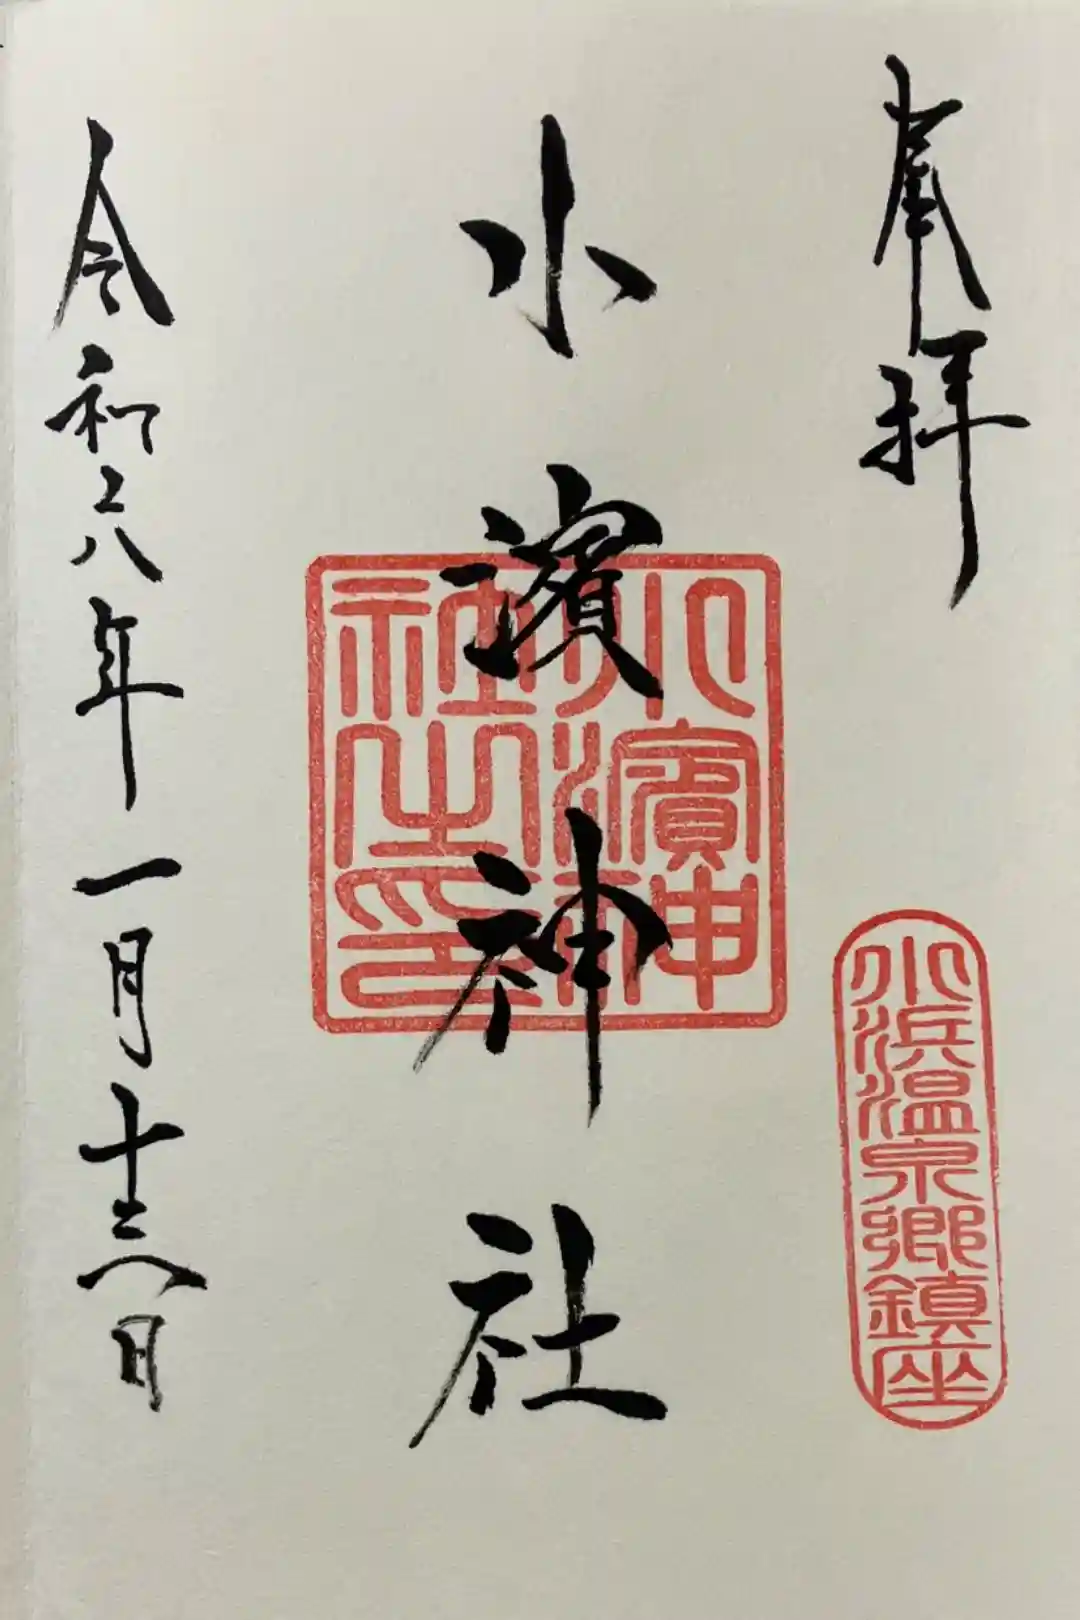 奉拝
小浜温泉郷鎮座
小濱神社
小濱神
社之印
令和六年一月十六日